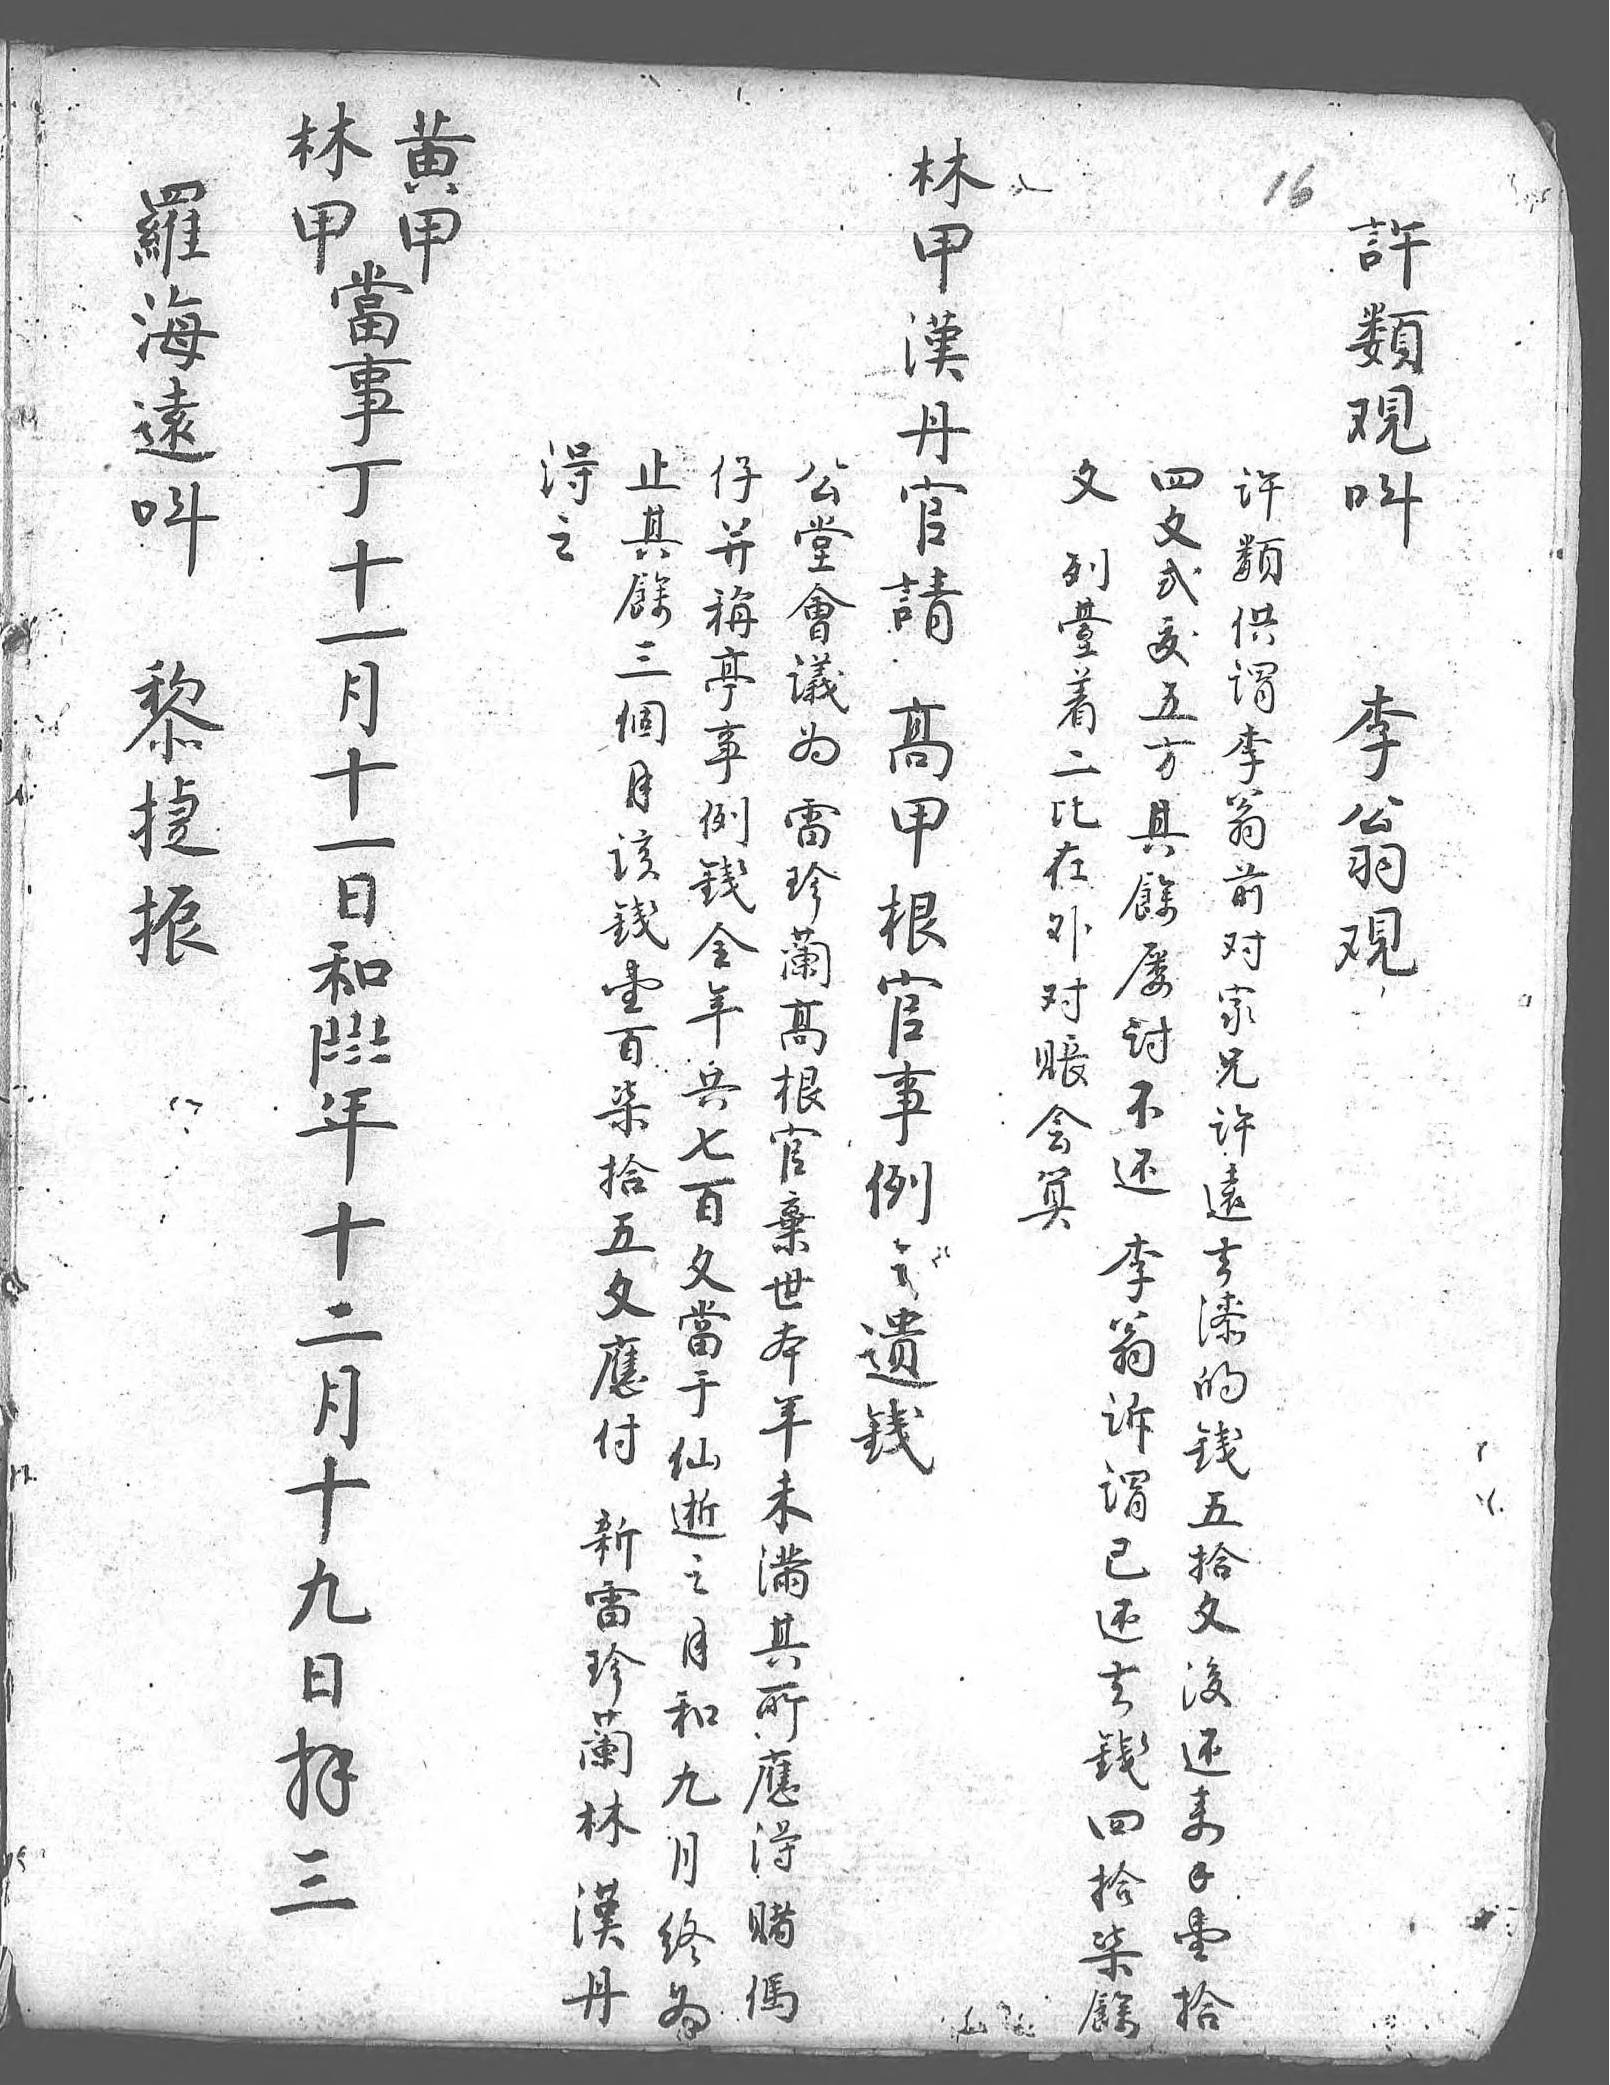 16
許類覌呌　李公翁覌
許類供謂李翁前对家兄許遠去漆的錢五拾文後還来𠄶壹拾
四文弍𢦓五方其餘屡討不还　李翁訴謂已还去錢四拾柒餘
文　列臺着二比在外对賬会算
林甲漢丹官請　髙甲根官事例遺錢
公堂會議为　雷珍蘭髙根官棄世本年未滿其所應得賭傌
仔并稱亭事例錢全年共七百文當于仙逝之月和九月終為
止其餘三個月该錢壹百柒拾五文應付　新雷珍蘭林漢丹
得之
黄甲
林甲當事丁十一月十一日和𝍤年十二月十九日拜三
羅海遠呌　黎捷振